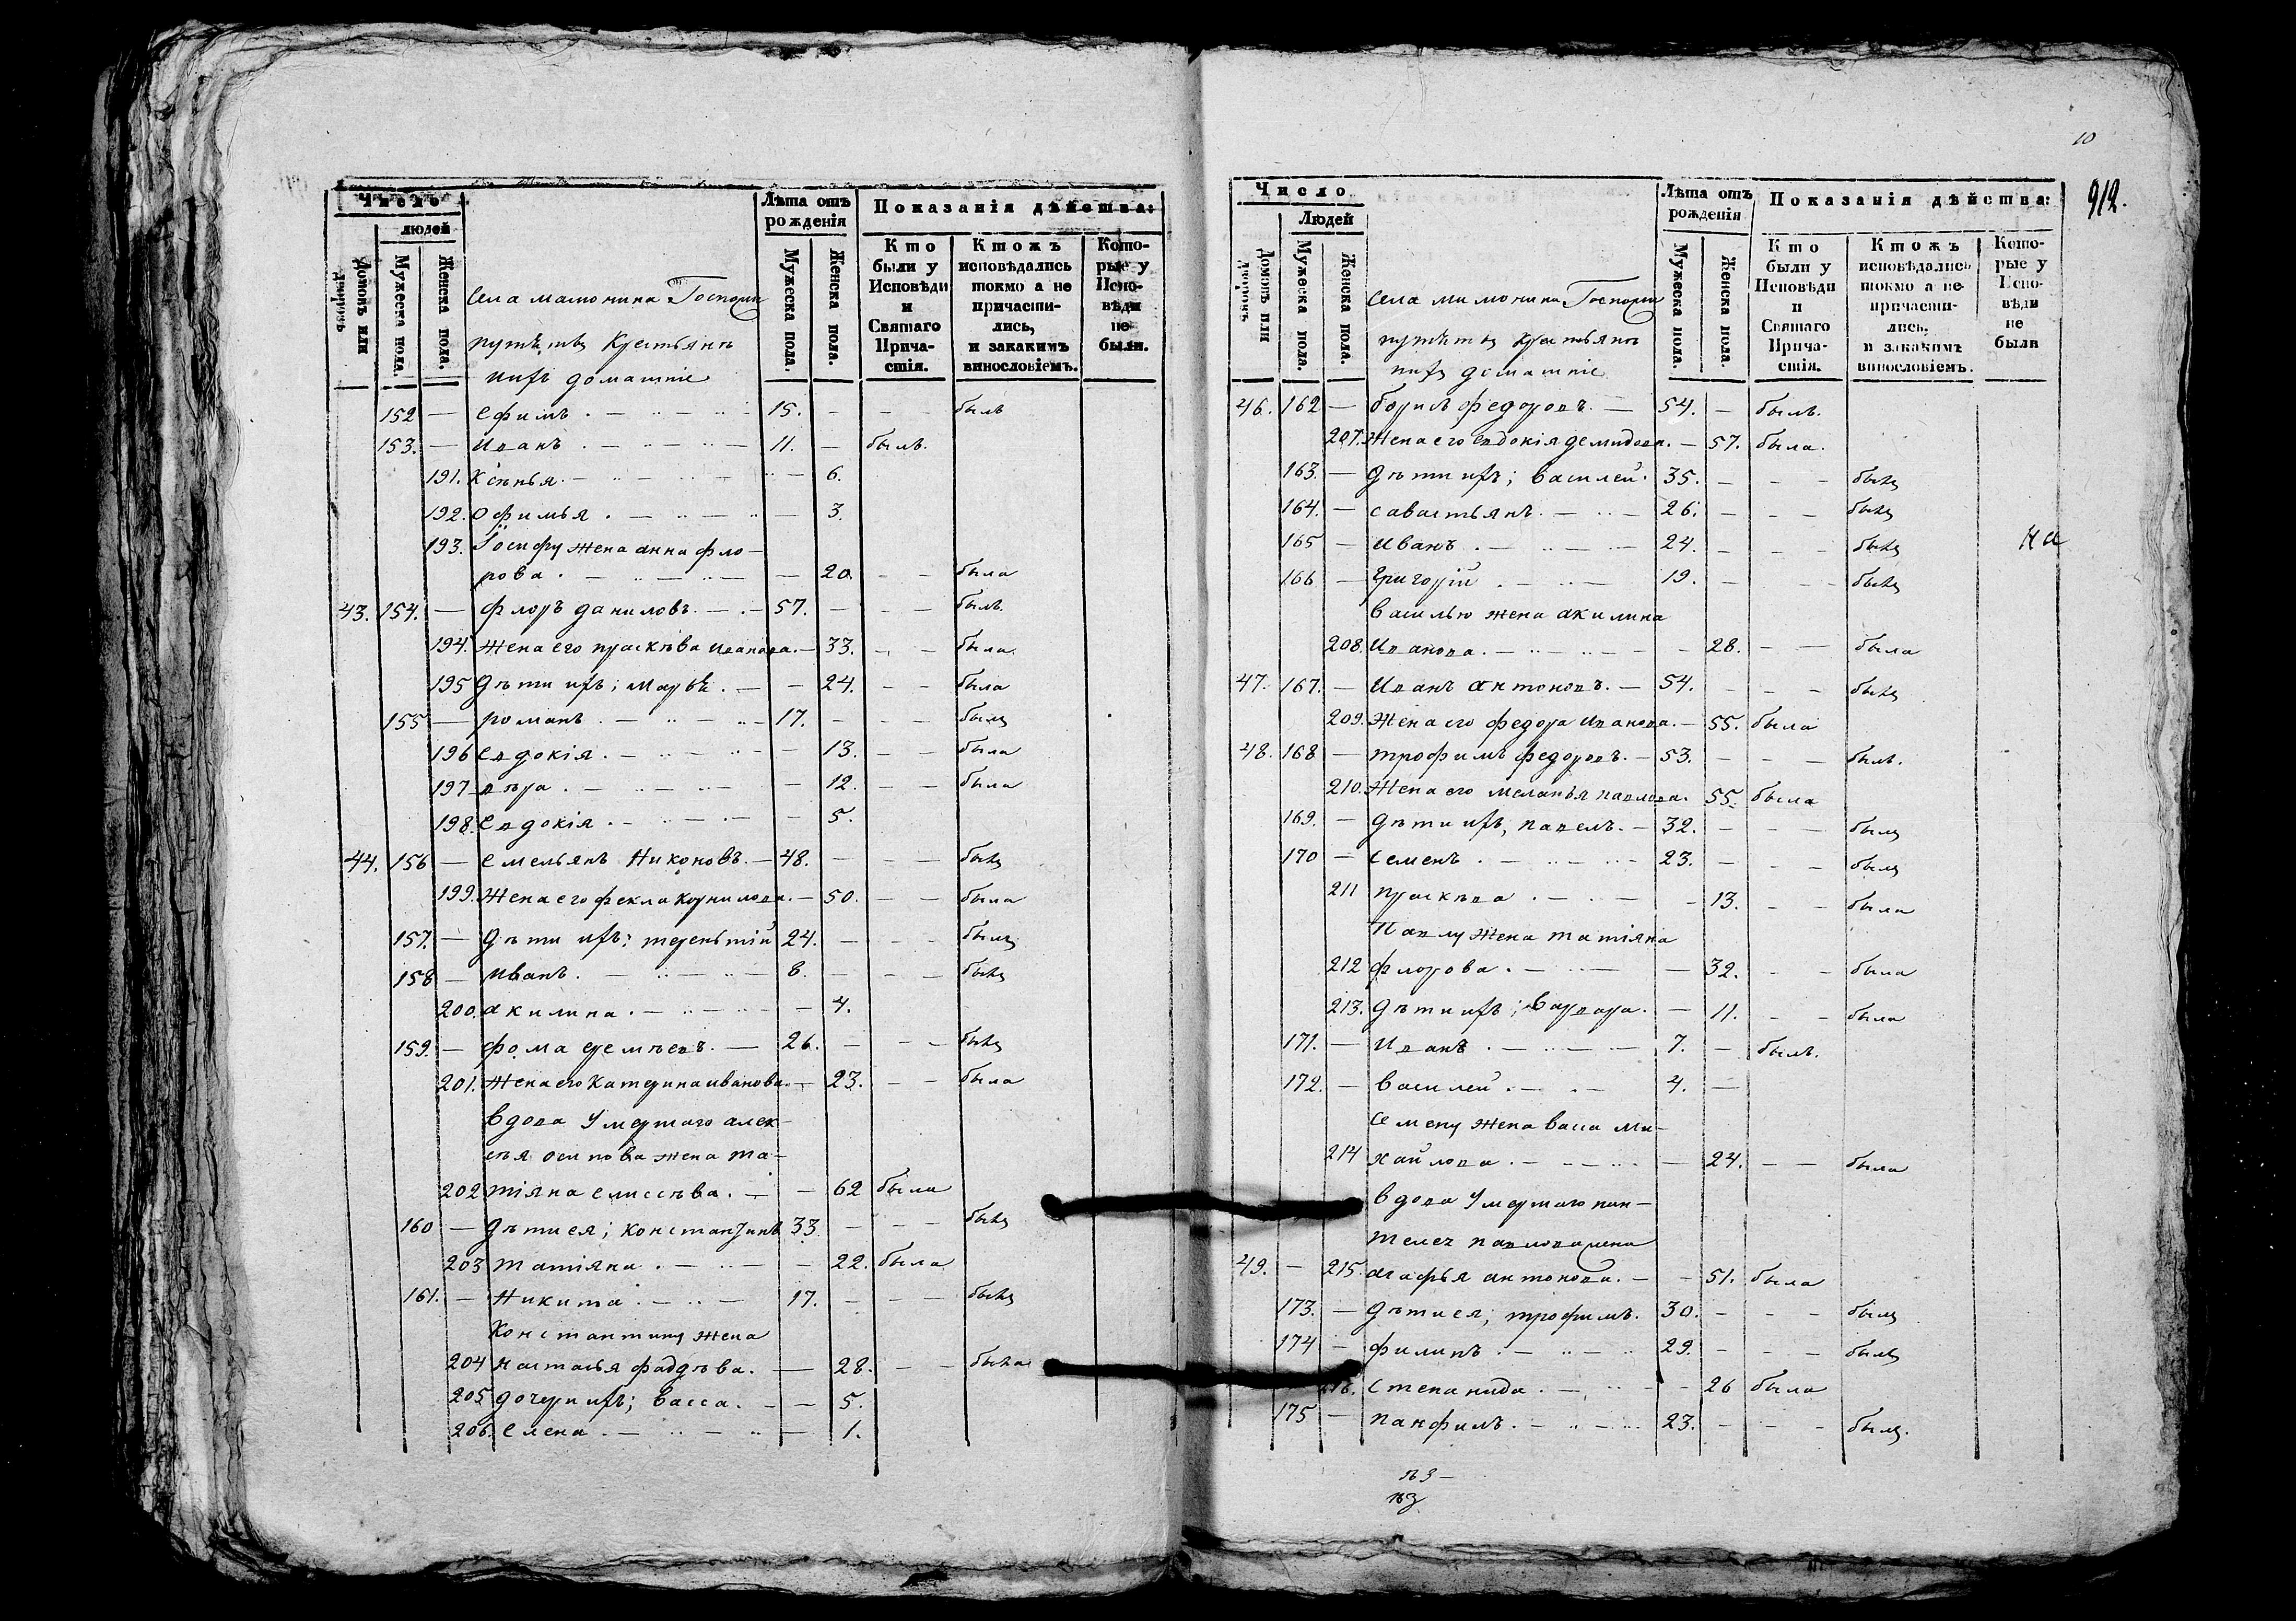 Число
людей
Домовъ или дворовъ
Мужеска пола.
Женска пола.
Лѣта отъ рожденія
Мужеска пола.
Женска пола.
Показанія дѣйства:
Кто были у Исповѣди и Святаго Причастія.
Ктожъ исповѣдались токмо а не причастились, и закакимъ винословіемъ.
Которые у Исповѣди не были.
Села
крестьянъ
ихъ домашніе
152 — Ефимъ. — 15. - - былъ
153. — Иванъ. — 11. — былъ.
191. Ксѣнья. — 6.
192. Офимья. — 3.
193. Іосифу жена анна фло-
рова. — 20. - - была
43. 154. — флоръ даниловъ. — 57. - - - былъ.
194. жена его прасковья иванова. — 33. - - была.
195 дѣти ихъ; марья. — 24. - - была
155 — романъ. — 17. - - - былъ
196 Евдокія. — 13. - - была
197 вѣра. — 12. - - была
198. Евдокія. — 5.
44. 156 — Емельянъ Никоновъ. — 48. - - - былъ
199. жена его фекла корнилова. — 50. - - была
157. — дѣти ихъ; терентій 24. - - - былъ
158 — иванъ. — 8. - - - былъ
200. акилина. — 4.
159. — фома еремѣевъ. — 26. - - - былъ
201. жена его катерина иванова. — 23. - - была
вдова умершаго алек-
сѣя осипова жена та-
202 тіяна елисѣева. — 62 была
160 — дѣти ея; константинъ 33 - - - былъ
203 татіяна. — 22. была
161. — Никита. — 17. - - - былъ
константину жена
204 настасья фадѣева. — 28. - - была
205 дочери ихъ; васса. — 5.
206. елена. — 1.
10
912.
Число
Людей
Домовъ или дворовъ
Мужеска пола.
Женска пола.
Лѣта отъ рожденія
Мужеска пола.
Женска пола.
Показанія дѣйства:
Кто были у Исповѣди и Святаго Причастія.
Ктожъ исповѣдались токмо а не причастились. и закакимъ винословіемъ.
Которые у Исповѣди не были
Села
крестьянъ
ихъ домашніе
46. 162 — борисъ федоровъ. — 54. - былъ.
207. жена его евдокія демидова. — 57. была.
163. — дѣти ихъ; василей. 35. - - - былъ
164. — савастьянъ. — 26. - - - былъ
165 — иванъ. — 24. - - - былъ
на
166 — григорій. — 19. - - былъ
василью жена акилина
208. Иванова. — 28. - - была
47. 167. — Иванъ антоновъ. — 54. - - - былъ
209. жена его федора иванова. — 55. была
48. 168 — трофимъ федоровъ. — 53. - - - былъ.
210. жена его меланья павлова. 55. была
169. — дѣти ихъ, павелъ. — 32. - - - былъ
170 — семенъ. — 23. - - - былъ
211 прасковья. — 13. - - была
павлу жена татіяна
212 флорова. — 32. - - была
213. дѣти ихъ; варвара. — 11. - - была
171. — Иванъ. — 7. — былъ.
172. — василей. — 4. —
семену жена васса ми-
214 хайлова. — 24. - - была
вдова умершаго пан-
телея павлова жена
49. — 215. агафья антонова. — 51. была
173. — дѣти ея; трофимъ. 30. - - - былъ
174 — филипъ. — 29. - - - былъ
216. степанида. — 26 была
175 — панфилъ. — 23. - - - былъ.